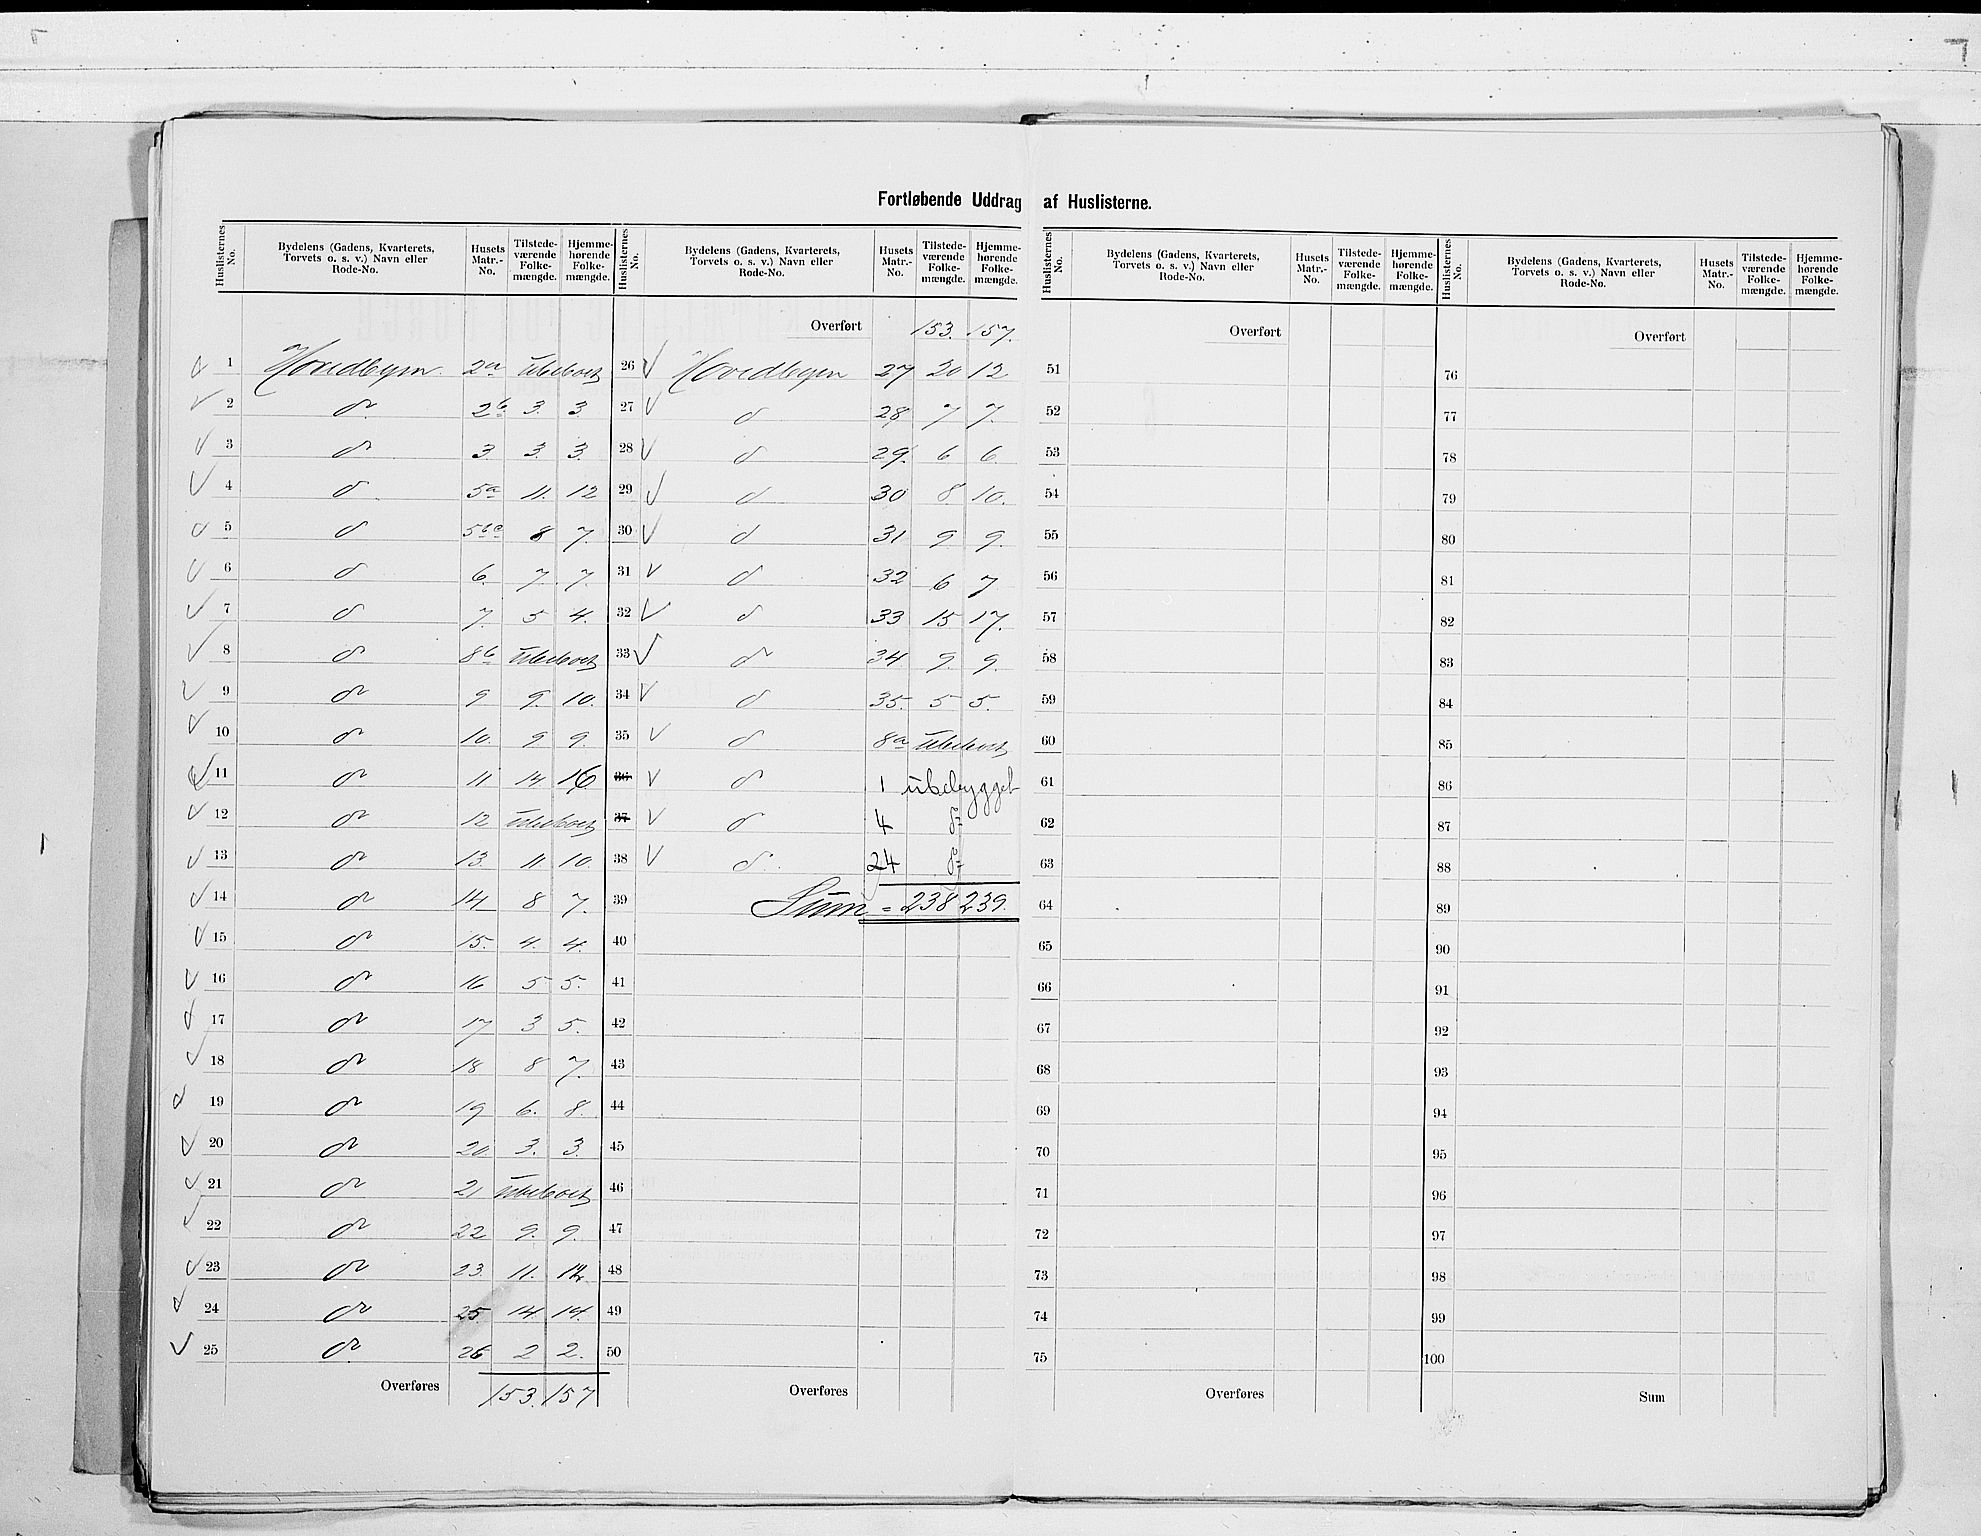 Fortløbende Uddrag af Huslisterne.
Huslisternes No. | Bydelens (Gadens, Kvarterets, Torvets o. s. v.) Navn eller Rode-No. | Husets Matr.-No. | Tilstede-værende Folke-mængde. | Hjemme-hørende Folke-mængde.
1 Hovedbyen. 2a Ubeboet
2 do 2b 3. 3
3 do 3. 3. 3.
4 do 5a 11. 12
5 do 5bc 8 7.
6 do 6. 7. 7.
7 do 7. 5 4.
8 do 8b Ubeboet
9 do 9 9. 10.
10 do 10. 9 9.
11 do 11 14 16
12 do 12 Ubeboet
13 do 13. 11 10.
14 do 14 8 7.
15 do 15. 4. 4.
16 do 16 5 5.
17 do 17 3 5.
18 do 18 8 7.
19 do 19 6. 8.
20 do 20 3. 3.
21 do 21 Ubeboet
22 do 22 9. 9.
23 do 23. 11. 12.
24 do 25. 14 14.
25 do 26 2 2.
Overføres 153. 157
Huslisternes No. | Bydelens (Gadens, Kvarterets, Torvets o. s. v.) Navn eller Rode-No. | Husets Matr.-No. | Tilstede-værende Folke-mængde. | Hjemme-hørende Folke-mængde.
Overført 153. 157.
26 Hovedbyen 27 20 12
27 do 28 7 7.
28 do 29. 6 6.
29 do 30 8 10.
30 do 31 9. 9.
31 do 32 6 7
32 do 33 15 17.
33 do 34 9. 9.
34 do 35. 5 5.
35 do 8a Ubeboet
36 do 1 ubebygget
37 do 4 do
38 do 24 do
39 Sum = 238 239.
40
41
42
43
44
45
46
47
48
49
50
Overføres
Huslisternes No. | Bydelens (Gadens, Kvarterets, Torvets o. s. v.) Navn eller Rode-No. | Husets Matr.-No. | Tilstede-værende Folke-mængde. | Hjemme-hørende Folke-mængde.
Overført
51
52
53
54
55
56
57
58
59
60
61
62
63
64
65
66
67
68
69
70
71
72
73
74
75
Overføres
Huslisternes No. | Bydelens (Gadens, Kvarterets, Torvets o. s. v.) Navn eller Rode-No. | Husets Matr.-No. | Tilstede-værende Folke-mængde. | Hjemme-hørende Folke-mængde.
Overført
76
77
78
79
80
81
82
83
84
85
86
87
88
89
90
91
92
93
94
95
96
97
98
99
100
Sum